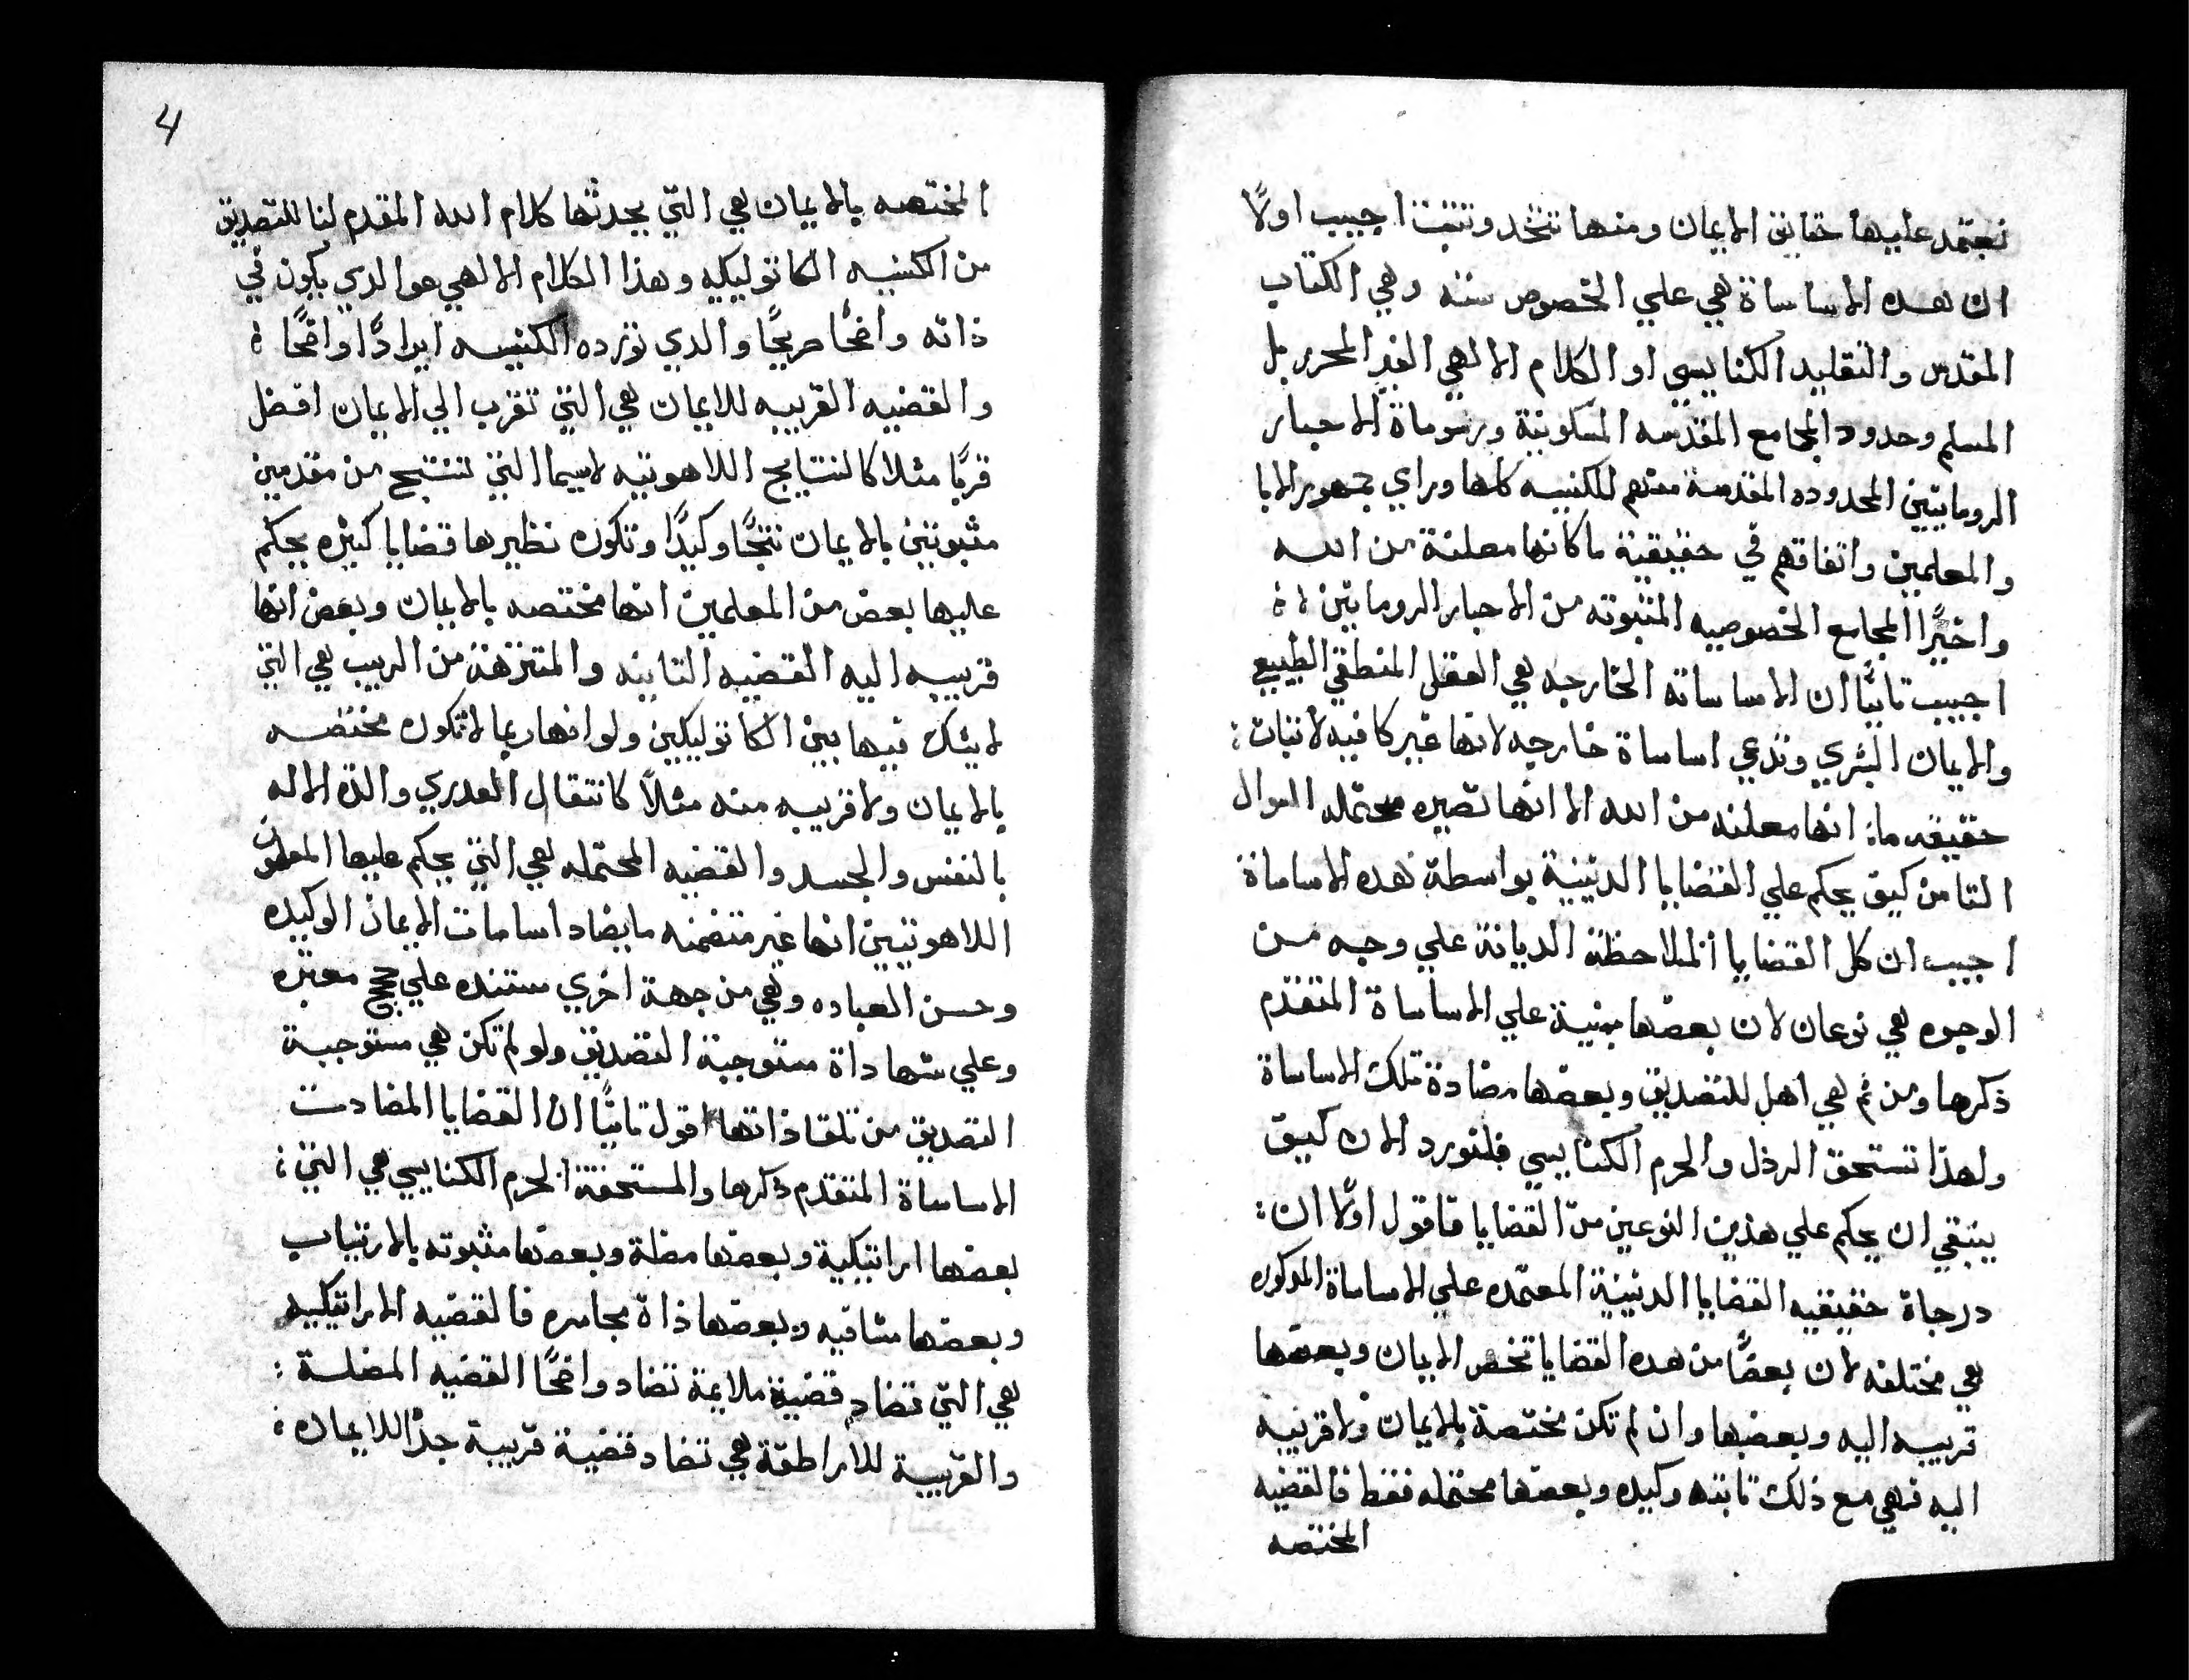 نعتمد عليها حقايق الايمان ومنها تتخد وتتبت اجيب اولاً
ان هده الاساساة هي علي الخصوص سته وهي الكتاب
المقدس والتقليد الكنايسي او الكلام الالهي الغير المحرر بل
المسلم وحدود المجامع المقدسه المسكونية ورسوماة الاحبار
الرومانيين المحدوده المقدسة منهم للكنيسه كلها وراي جمهور الابا
والمعلمين واتفاقهم في حقيقية ما كانها معلنة من الله
واخيرًا المجامع الخصوصيه المثبوته من الاحبار الرومانين ؛
اجيب تانيًا ان الاساساته الخارجه هي العقل المنطقي الطبيعي
والايمان البشري وتدعي اساساة خارجه لانها غير كافيه لاتبات ؛
حقيقه ما ؛ انها معلنه من الله الا انها تصيره محتمله السوال
التامن كيف يحكم علي القضايا الدينية بواسطة هده الاساساة
اجيب ان كل القضايا الملاحظة الديانة علي وجه من
الوجوه هي نوعان لان بعضها مبنية علي الاساساة المتقدم
ذكرها ومن ثم هي اهل للتصديق وبعضها مضادة تلك الاساساة
ولهذا تستحق الرذل والحرم الكنايسي فلنورد الان كيف
ينبغي ان يحكم علي هذين النوعين من القضايا فاقول اولاً ان ؛
درجاة حقيقيه القضايا الدينية المعتمده علي الاساساة المدكوره
هي مختلفه لان بعضًا من هده القضايا تخص الايمان وبعضها
قريبه اليه وبعضها وان لم تكن مختصة بالايمان ولا قريبة
اليه فهي مع ذلك تابته وكيده وبعضها محتمله فقط فالقضيه
المختصه
4
المختصه بالايمان هي التي يحدثها كلام الله المقدم لنا للتصديق
من الكنيسه الكاتوليكيه وهذا الكلام الالهي هو الدي يكون في
ذاته واضحًا صريحًا والدي تورده الكنيسه ايرادًا واضحًا ؛
والقضيه القريبه للايمان هي التي تقرب الي الايمان افضل
قربًا مثلا كالنتايج اللاهوتيه لاسيما التي تنتج من مقدمين
مثبوتين بالايمان نتجًا وكيدًا وتكون نظيرها قضايا كثيره يحكم
عليها بعض من المعلمين انها مختصه بالايمان وبعض انها
قريبه اليه القضيه التابته والمتنزهة من الريب هي التي
لا يشك فيها بين الكاتوليكين ولو انها ربما لا تكون مختصه
بالايمان ولا قريبه منه مثلاً كانتقال العدري والدة الاله
بالنفس والجسد والقضيه المحتمله هي التي يحكم عليها المعلمون
اللاهوتيين انها غير متضمنه ما يضاد اساسات الايمان الوكيده
وحسن العباده وهي من جهة اخري مستنده علي حجج معتبره
وعلي شهاداة مستوجبة التصديق ولو لم تكن هي مستوجبة
التصديق من تلقا ذاتها اقول تانيًا ان القضايا المضادت
الاساساة المتقدم ذكرها والمستحقة الحرم الكنايسي هي التي ؛
بعضها اراتيكية وبعضها مضلة وبعضها مثبوته بالارتياب
وبعضها شاقيه وبعضها ذاة مجاسره فالقضيه الاراتيكيه
هي التي تضاد قضية ملايمة تضاد واضحًا القضيه المضلة ؛
والقريبة للاراطقة هي تضاد قضية قريبة جدًا للايمان ؛